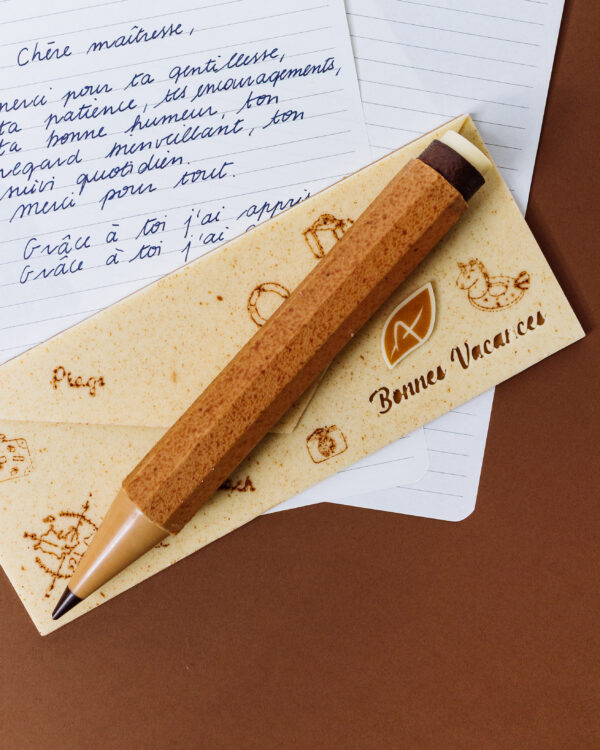 Chère maîtresse,
merci pour ta gentillesse,
ta patience, tes encouragements,
ta bonne humeur, ton
regard bienveillant, ton
suivi quotidien.
merci pour tout.
Grâce à toi j'ai appris
Grâce à toi j'ai
Bonnes Vacances